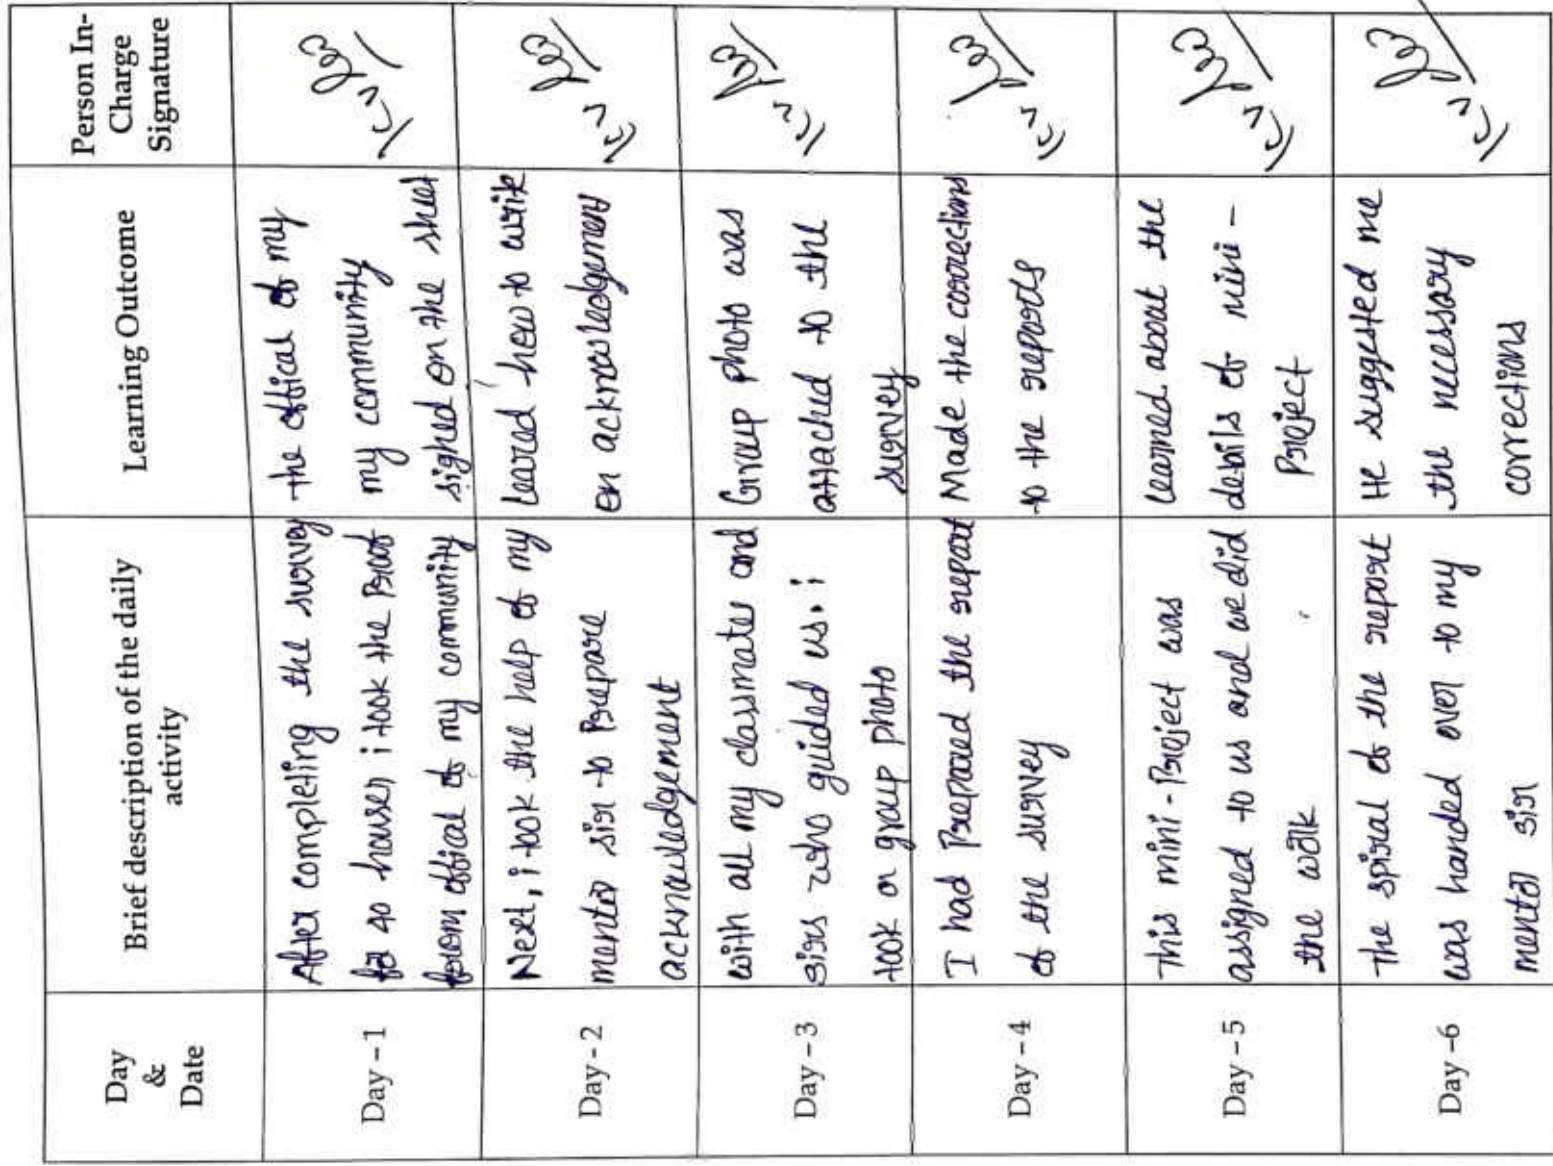 Day
&
Date
Brief description of the daily
activity
Learning Outcome
Person In-
Charge
Signature
Day – 1
After completing the survey
for 40 houses i took the Proof
from offical of my community
the offical of my
my community
sighed on the sheet
Day - 2
Next, i took the help of my
mentor sir to Prepare
acknowledgement
learod how to write
en acknowledgement
Day – 3
with all my classmates and
sirs who guided us. i
took a group photo
Group photo was
attached to the
survey
Day –4
I had Prepraed the report
of the survey
Made the corrections
to the reports
Day – 5
This mini-Project was
assigned to us and we did
the work
learned about the
details of mini-
Project
Day –6
the spiral of the report
was handed over to my
mentor sir
He suggested me
the necessary
corrections